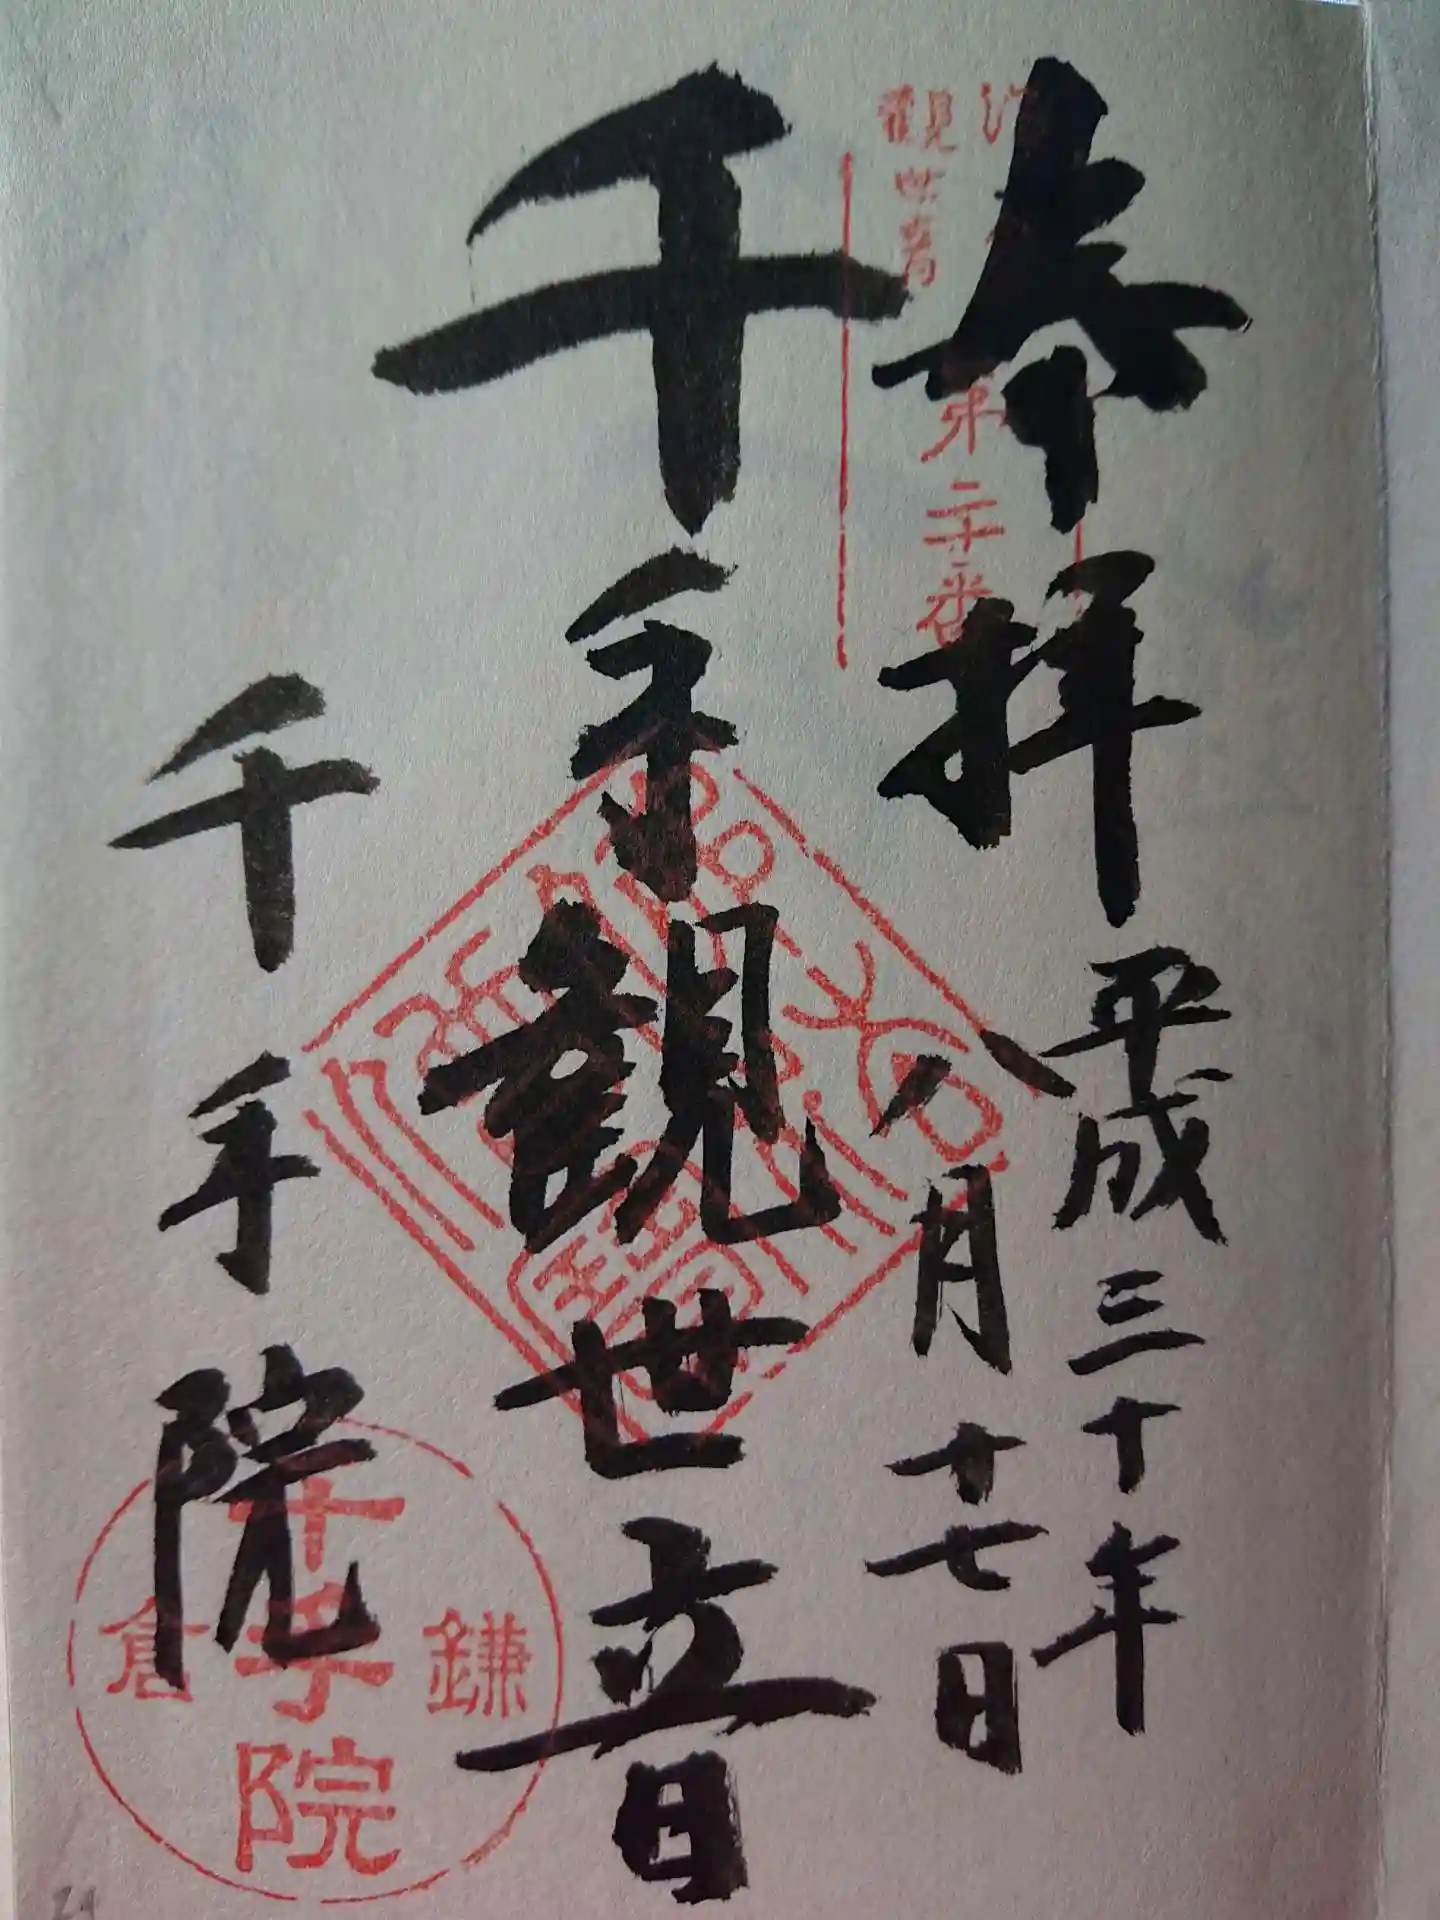 奉拝
平成三十年
八月十七日
千手観世音
千手院
観世音
第二十番
鎌倉
千手院
24